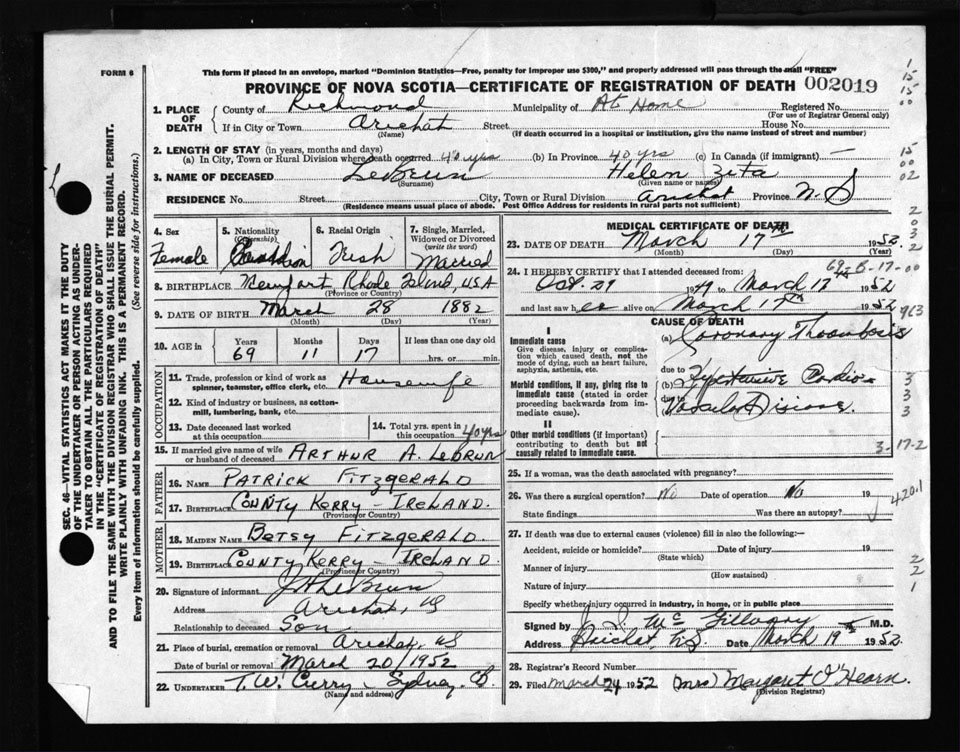 FORM 6
This form if placed in an envelope, marked "Dominion Statistics—Free, penalty for improper use $300," and properly addressed will pass through the mail "FREE"
PROVINCE OF NOVA SCOTIA—CERTIFICATE OF REGISTRATION OF DEATH 002019
1. PLACE OF DEATH
County of Richmond Municipality of At Home Registered No.
(For use of Registrar General only)
If in City or Town Arichat Street House No.
(Name) (If death occurred in a hospital or institution, give the name instead of street and number)
2. LENGTH OF STAY (in years, months and days)
(a) In City, Town or Rural Division where death occurred 40 yrs (b) In Province 40 yrs (c) In Canada (if immigrant) —
3. NAME OF DECEASED LeBrun Helen Zita
(Surname) (Given name or names)
RESIDENCE No. Street City, Town or Rural Division Arichat Province N.S
(Residence means usual place of abode. Post Office Address for residents in rural parts not sufficient)
4. Sex
Female
5. Nationality (Citizenship)
Canadian
6. Racial Origin
Irish
7. Single, Married, Widowed or Divorced (write the word)
Married
8. BIRTHPLACE Newport Rhode Island, USA
(Province or Country)
9. DATE OF BIRTH March 28 1882
(Month) (Day) (Year)
10. AGE in Years Months Days If less than one day old
69 11 17 hrs. or min.
OCCUPATION
11. Trade, profession or kind of work as spinner, teamster, office clerk, etc. Housewife
12. Kind of industry or business, as cotton-mill, lumbering, bank, etc.
13. Date deceased last worked at this occupation
14. Total yrs. spent in this occupation 40 yrs
15. If married give name of wife or husband of deceased ARTHUR A. LEBRUN
FATHER
16. NAME PATRICK FITZGERALD
17. BIRTHPLACE COUNTY KERRY - IRELAND.
(Province or Country)
MOTHER
18. MAIDEN NAME BETSY FITZGERALD.
19. BIRTHPLACE COUNTY KERRY - IRELAND.
(Province or Country)
20. Signature of informant LeBrun
Address Arichat, NS
Relationship to deceased Son
21. Place of burial, cremation or removal Arichat, NS
Date of burial or removal March 20/1952
22. UNDERTAKER T.W. Curry - Sydney. C.B.
(Name and address)
MEDICAL CERTIFICATE OF DEATH
23. DATE OF DEATH March 17th 1952.
(Month) (Day) (Year)
24. I HEREBY CERTIFY that I attended deceased from:
Oct. 29 1949 to March 17 1952
and last saw her alive on March 17th 1952
CAUSE OF DEATH
I
Immediate cause
Give disease, injury or complication which caused death, not the mode of dying, such as heart failure, asphyxia, asthenia, etc.
(a) Coronary Thrombosis
due to
Morbid conditions, if any, giving rise to immediate cause (stated in order proceeding backwards from immediate cause).
(b) Hypertensive Cardio-
due to
Vascular Disease.
II
Other morbid conditions (if important) contributing to death but not causally related to immediate cause.
3-17-2
25. If a woman, was the death associated with pregnancy?
26. Was there a surgical operation? No Date of operation No 19
State findings Was there an autopsy?
420.1
27. If death was due to external causes (violence) fill in also the following:—
Accident, suicide or homicide? Date of injury 19
(State which)
Manner of injury
(How sustained)
Nature of injury
Specify whether injury occurred in industry, in home, or in public place
Signed by M.D.
Address Arichat, N.S. Date March 19 1952
28. Registrar's Record Number
29. Filed March 24 1952 (Mrs) Margaret O'Hearn.
(Division Registrar)
SEC. 46—VITAL STATISTICS ACT MAKES IT THE DUTY
OF THE UNDERTAKER OR PERSON ACTING AS UNDER-
TAKER TO OBTAIN ALL THE PARTICULARS REQUIRED
IN THE "CERTIFICATE OF REGISTRATION OF DEATH"
AND TO FILE THE SAME WITH THE DIVISION REGISTRAR WHO SHALL ISSUE THE BURIAL PERMIT.
WRITE PLAINLY WITH UNFADING INK. THIS IS A PERMANENT RECORD.
Every item of information should be carefully supplied. (See reverse side for instructions.)